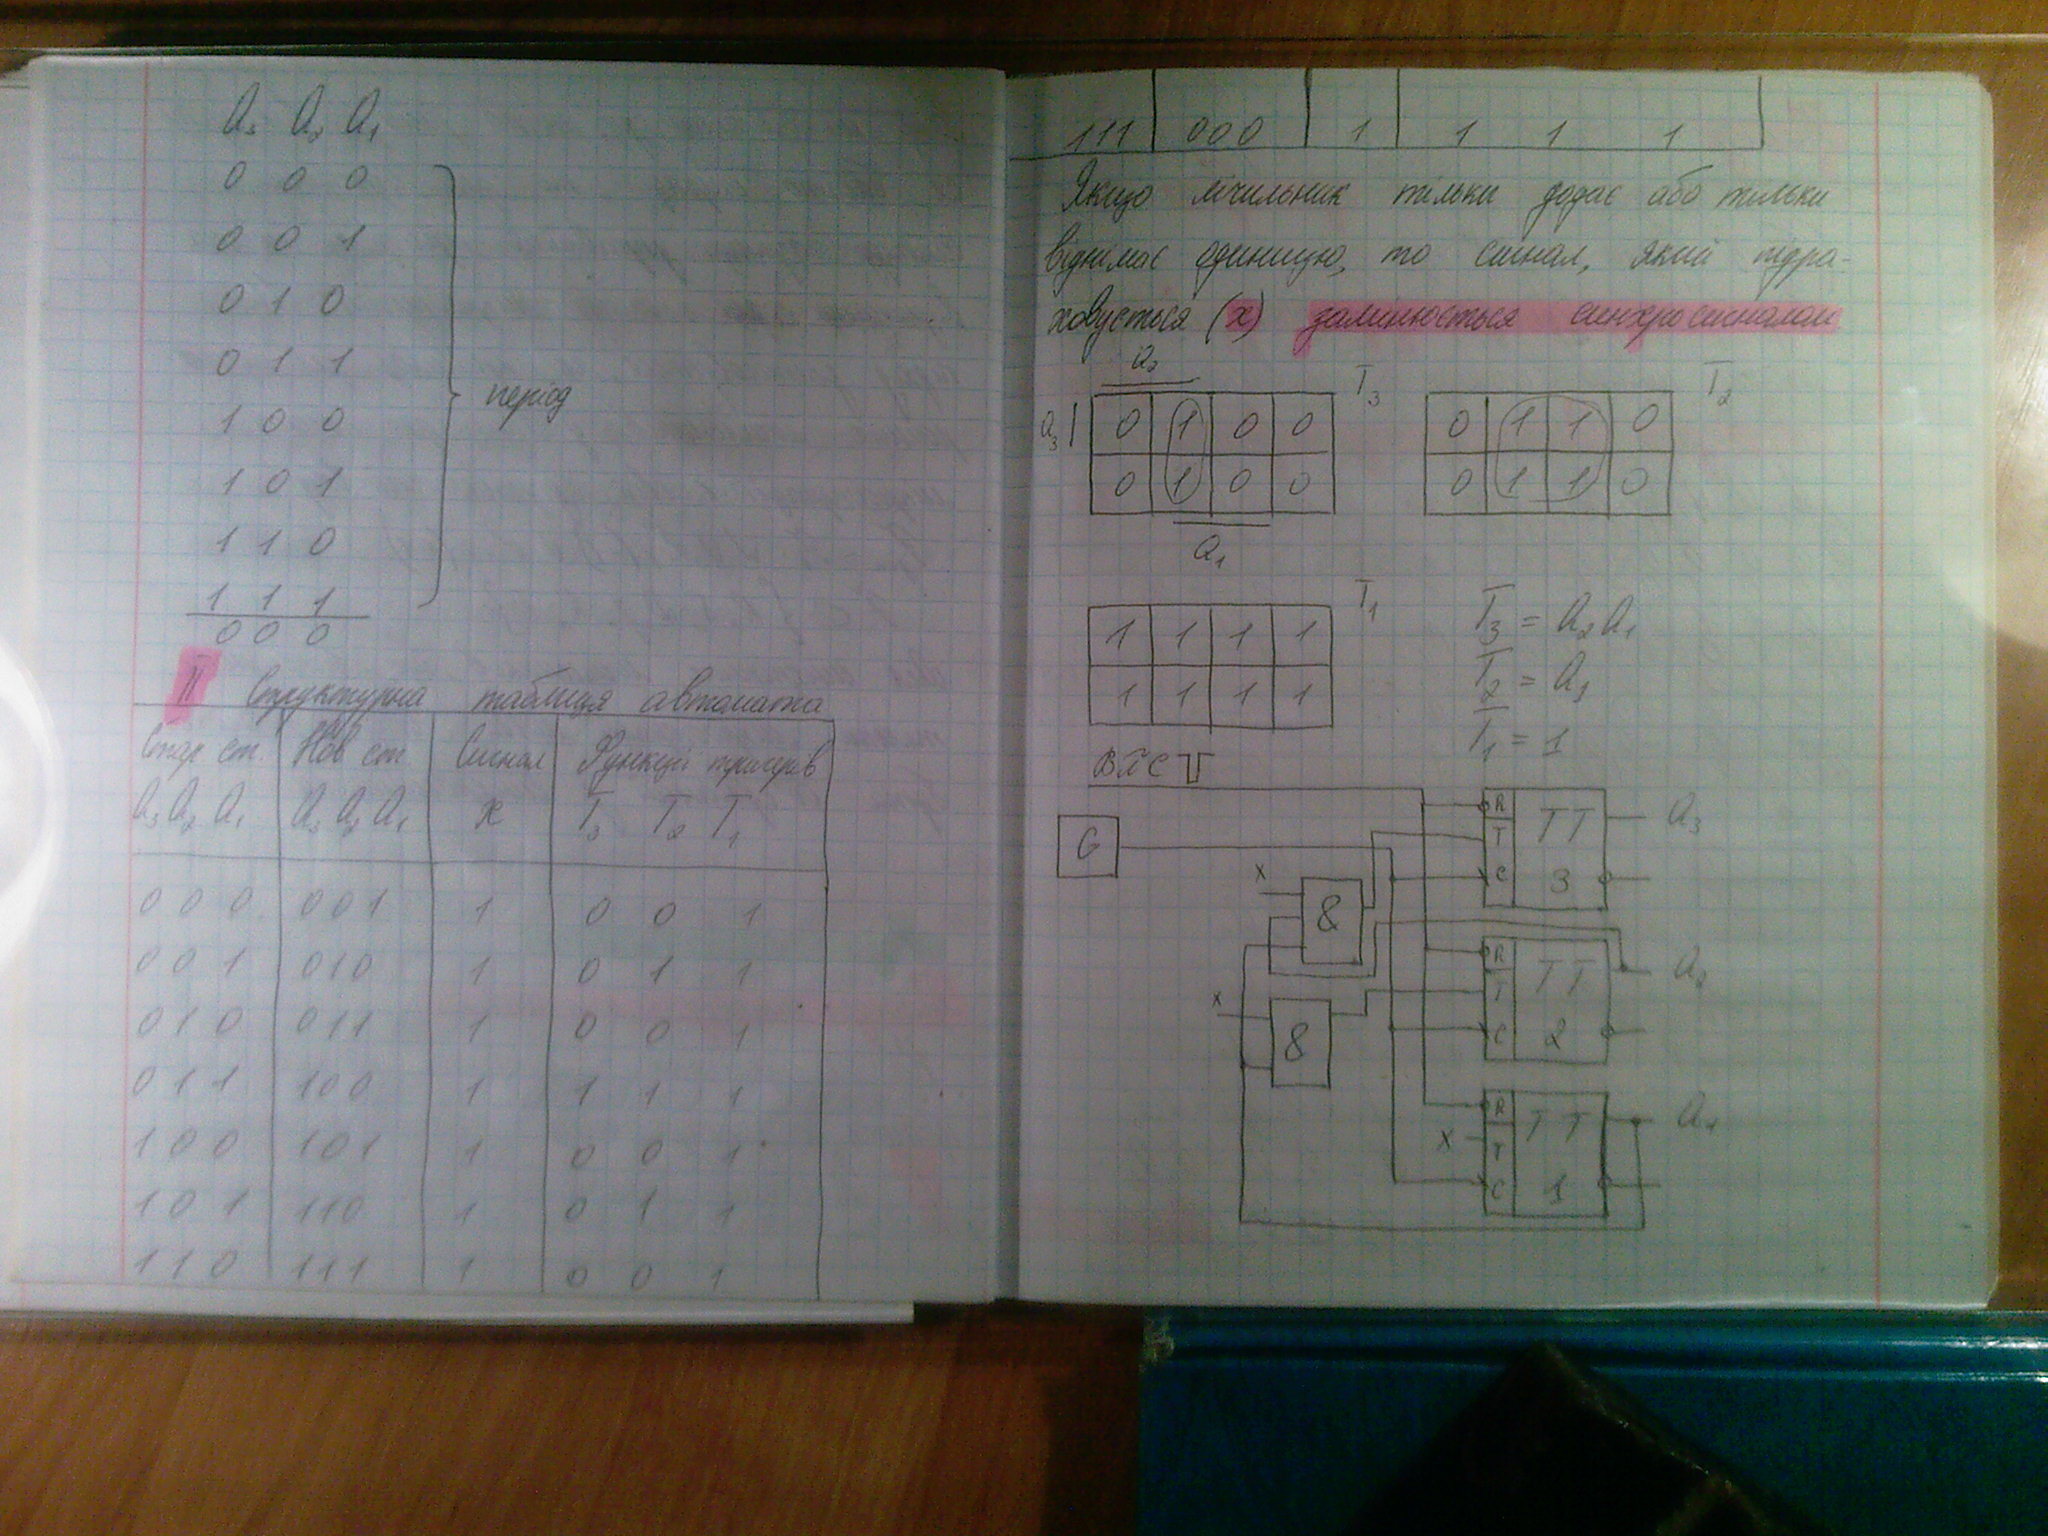 a₃ a₂ a₁
0 0 0
0 0 1
0 1 0
0 1 1
1 0 0
1 0 1
1 1 0
1 1 1
0 0 0
період
II Структурна таблиця автомата
Стар. ст. Нов ст. Сигнал Функції тригерів
a₃ a₂ a₁ a₃ a₂ a₁ x T₃ T₂ T₁
0 0 0 0 0 1 1 0 0 1
0 0 1 0 1 0 1 0 1 1
0 1 0 0 1 1 1 0 0 1
0 1 1 1 0 0 1 1 1 1
1 0 0 1 0 1 1 0 0 1
1 0 1 1 1 0 1 0 1 1
1 1 0 1 1 1 1 0 0 1
111 000 1 1 1 1
Якщо лічильник тільки додає або тільки
віднімає одиницю, то сигнал, який підра-
ховується (x) замінюється синхросигналом
a₂ T₃ T₂
a₃ 0 1 0 0 0 1 1 0
0 1 0 0 0 1 1 0
a₁
T₁
1 1 1 1
1 1 1 1
T₃ = a₂a₁
T₂ = a₁
T₁ = 1
G
R TT a₃
T
C 3
x
&
R TT a₂
T
C 2
x
&
R TT a₁
x T
C 1